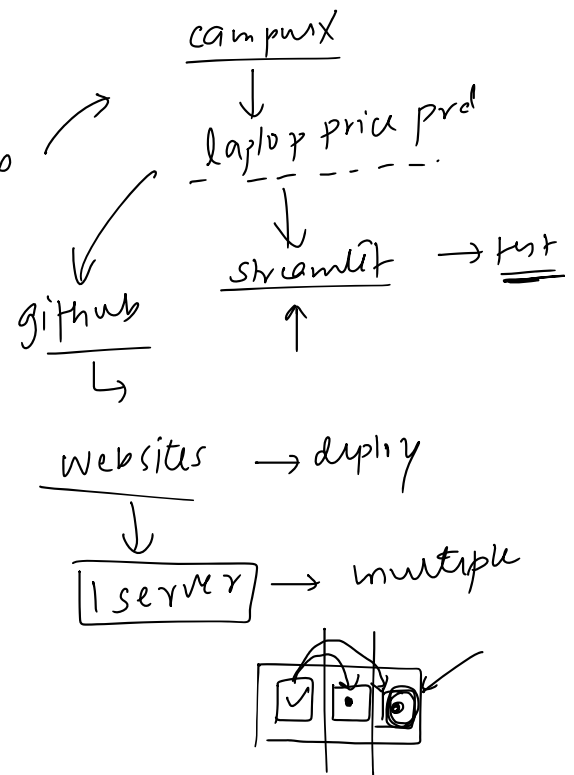 campusX
laptop price prd
streamlit → test
github
websites → deploy
1 server → multiple